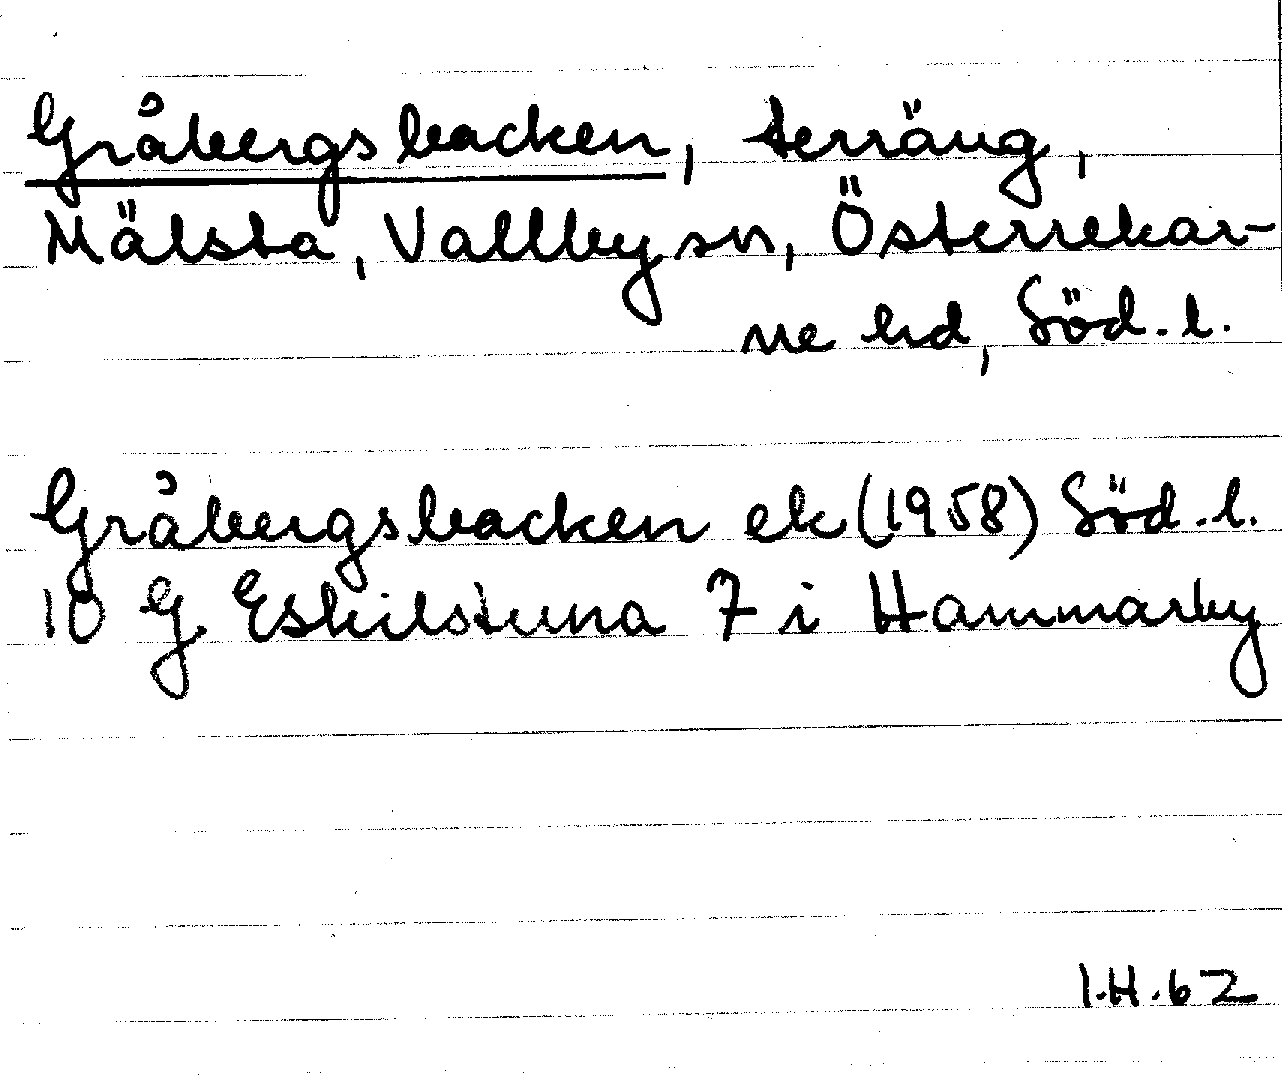 Gråbergsbacken, terräng,
Mälsta, Vallby sn, Österrekar-
ne hd, Söd. l.
Gråbergsbacken ek (1958) Söd. l.
10 G Eskilstuna 7 i Hammarby
I.H. 62